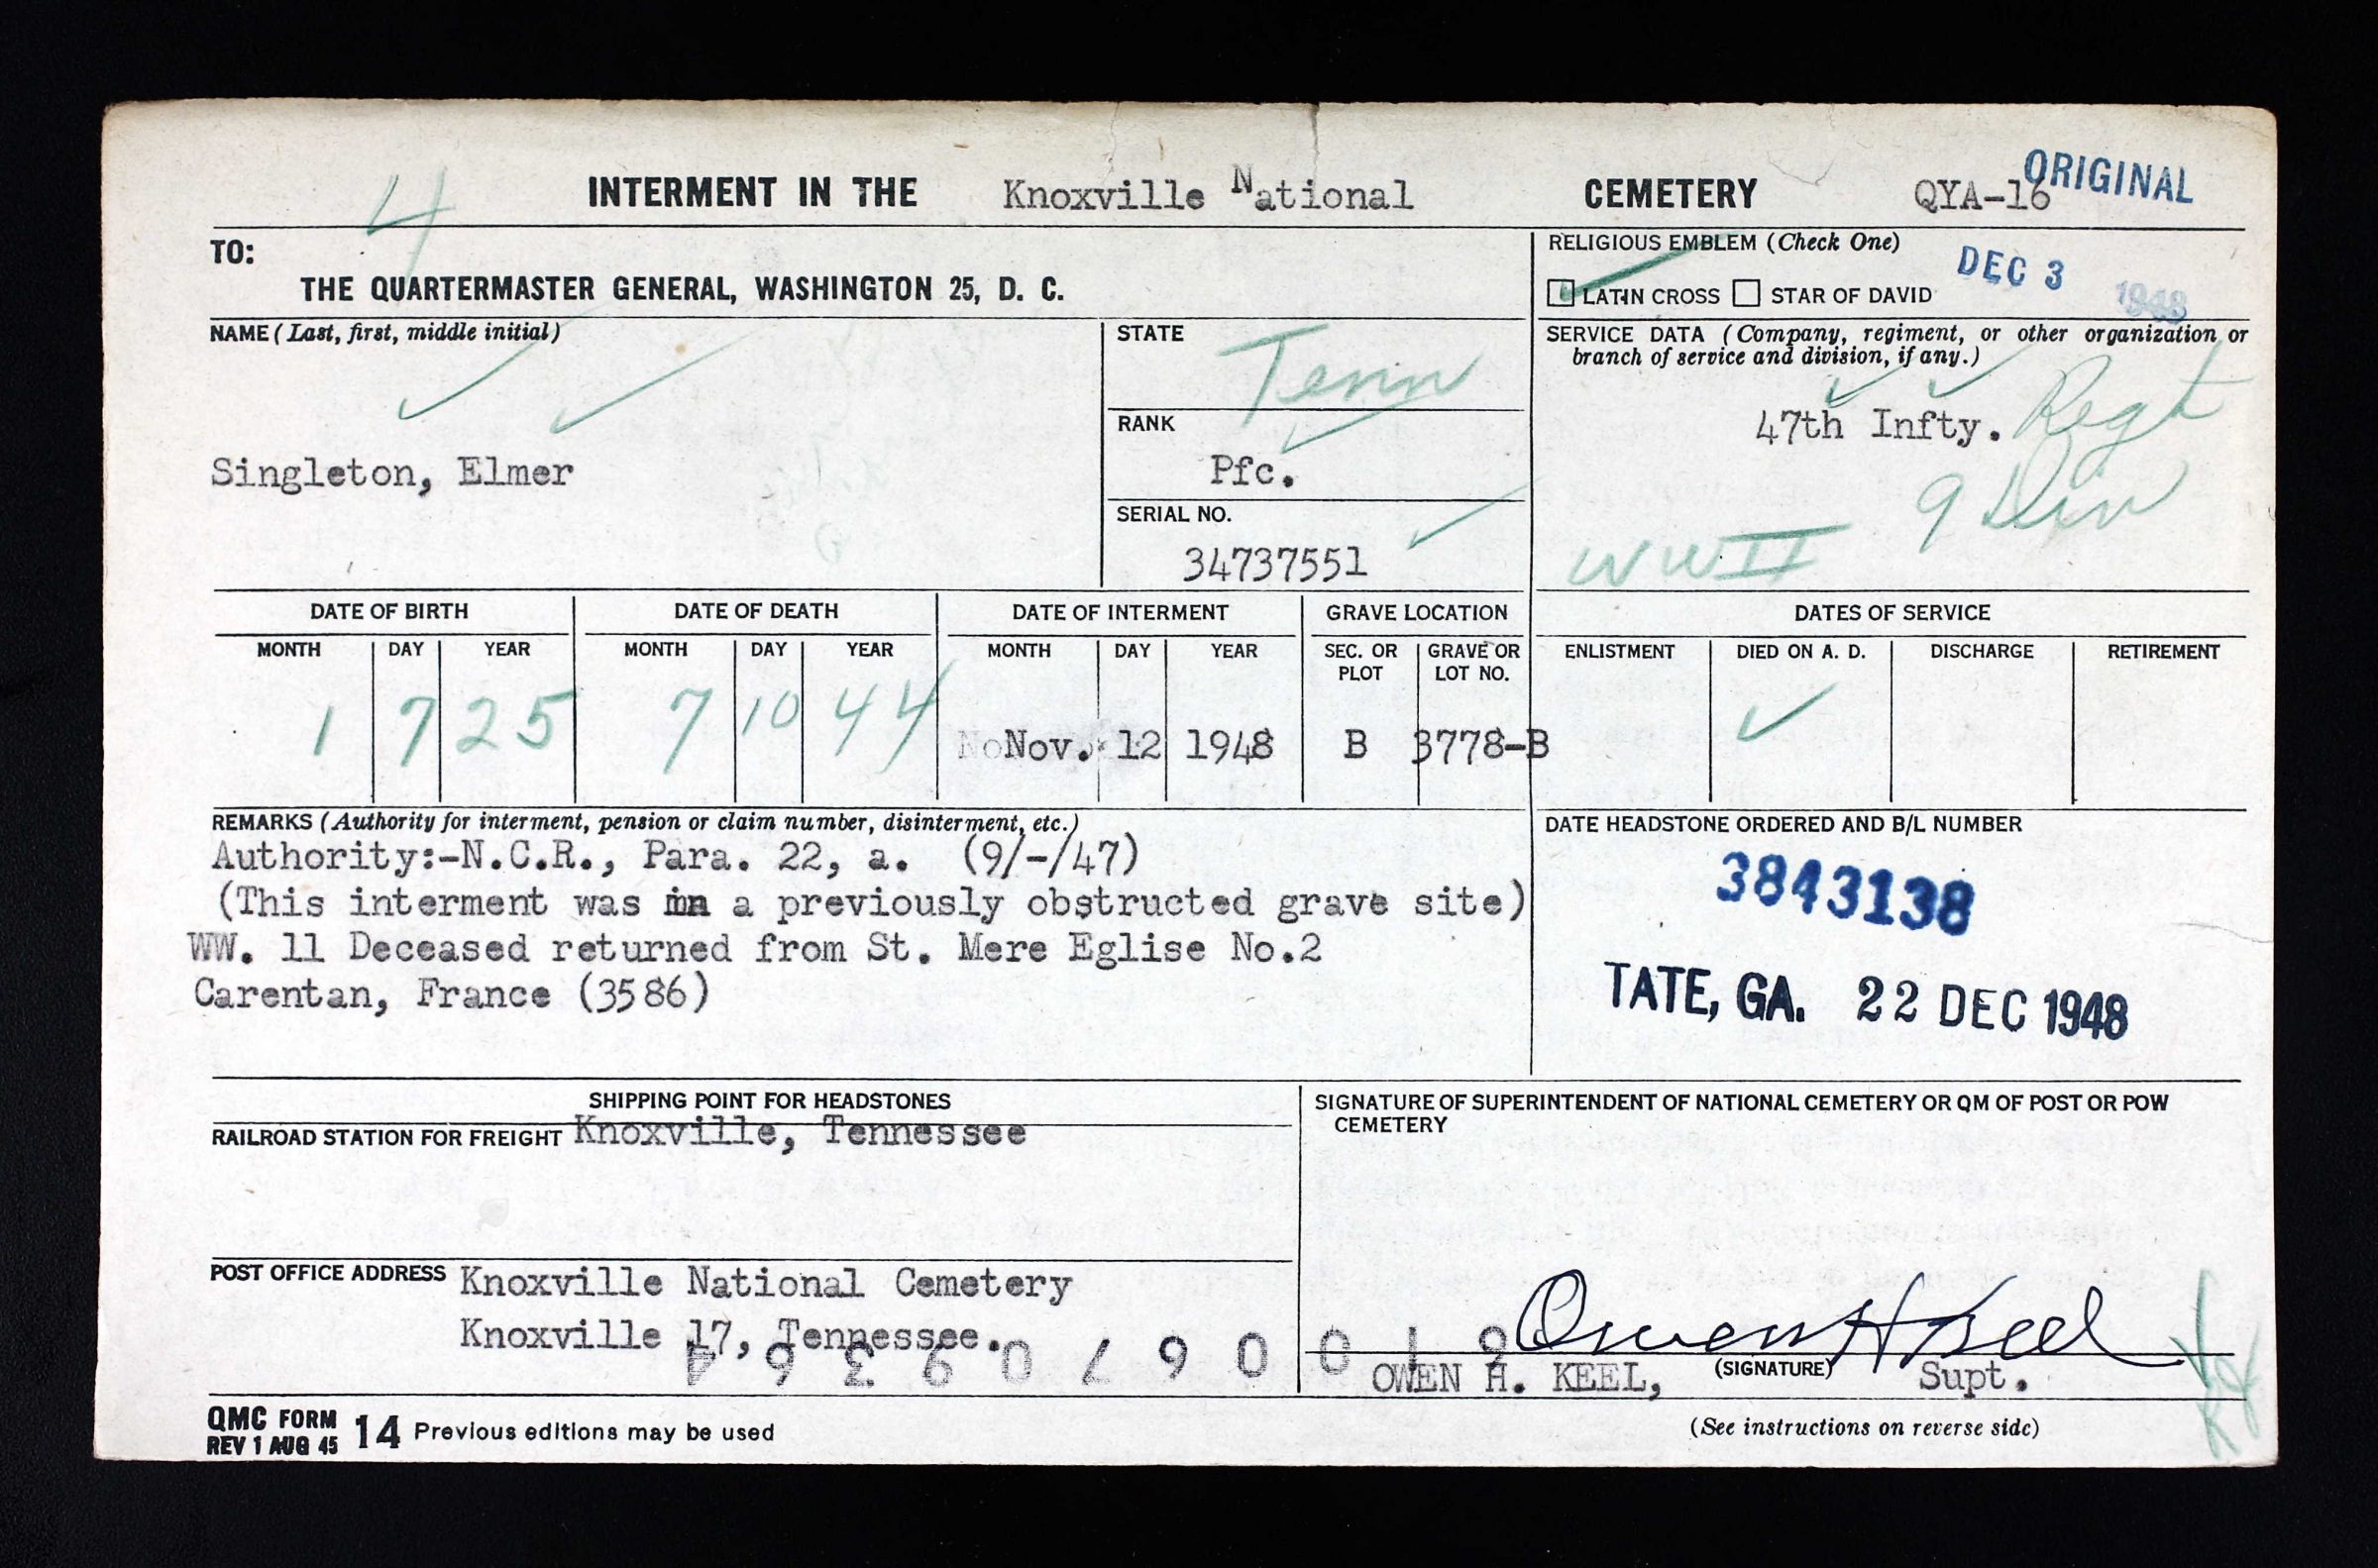 4
INTERMENT IN THE Knoxville National CEMETERY QYA-16 ORIGINAL
TO:
THE QUARTERMASTER GENERAL, WASHINGTON 25, D. C.
RELIGIOUS EMBLEM (Check One)
DEC 3 1948
LATIN CROSS STAR OF DAVID
NAME (Last, first, middle initial)
Singleton, Elmer
STATE
Tenn
RANK
Pfc.
SERIAL NO.
34737551
SERVICE DATA (Company, regiment, or other organization or
branch of service and division, if any.)
47th Infty. Regt
9 Div
WW II
DATE OF BIRTH DATE OF DEATH DATE OF INTERMENT GRAVE LOCATION DATES OF SERVICE
MONTH DAY YEAR MONTH DAY YEAR MONTH DAY YEAR SEC. OR PLOT GRAVE OR LOT NO. ENLISTMENT DIED ON A. D. DISCHARGE RETIREMENT
1 7 25 7 10 44 Nov. 12 1948 B 3778-B
REMARKS (Authority for interment, pension or claim number, disinterment, etc.)
Authority:-N.C.R., Para. 22, a. (9/-/47)
(This interment was in a previously obstructed grave site)
WW. 11 Deceased returned from St. Mere Eglise No.2
Carentan, France (3586)
DATE HEADSTONE ORDERED AND B/L NUMBER
3843138
TATE, GA. 22 DEC 1948
SHIPPING POINT FOR HEADSTONES
RAILROAD STATION FOR FREIGHT Knoxville, Tennessee
POST OFFICE ADDRESS Knoxville National Cemetery
Knoxville 17, Tennessee.
SIGNATURE OF SUPERINTENDENT OF NATIONAL CEMETERY OR QM OF POST OR POW
CEMETERY
Owen H Keel
OWEN H. KEEL, (SIGNATURE) Supt.
QMC FORM
REV 1 AUG 45 14 Previous editions may be used
(See instructions on reverse side)